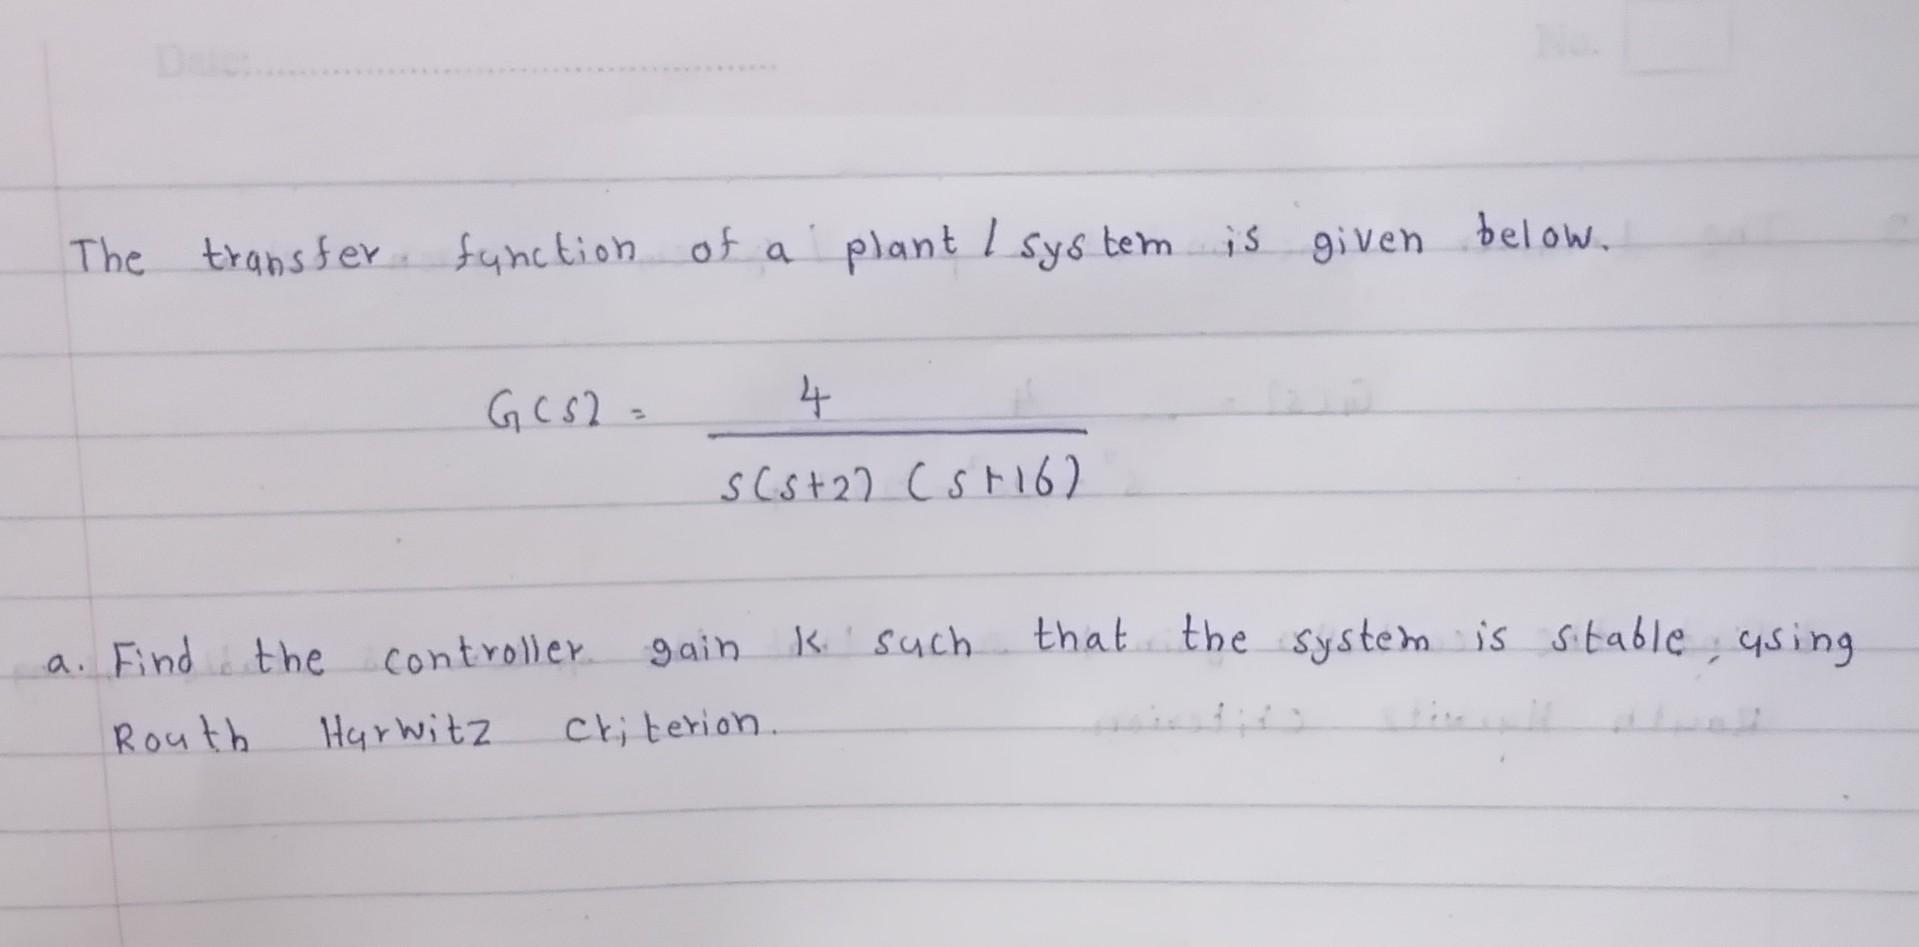 Date:
No.
The transfer function of a plant / system is given below.
G(s) = 4 / s(s+2) (s+16)
a. Find the controller gain K such that the system is stable, using
Routh Hurwitz Criterion.